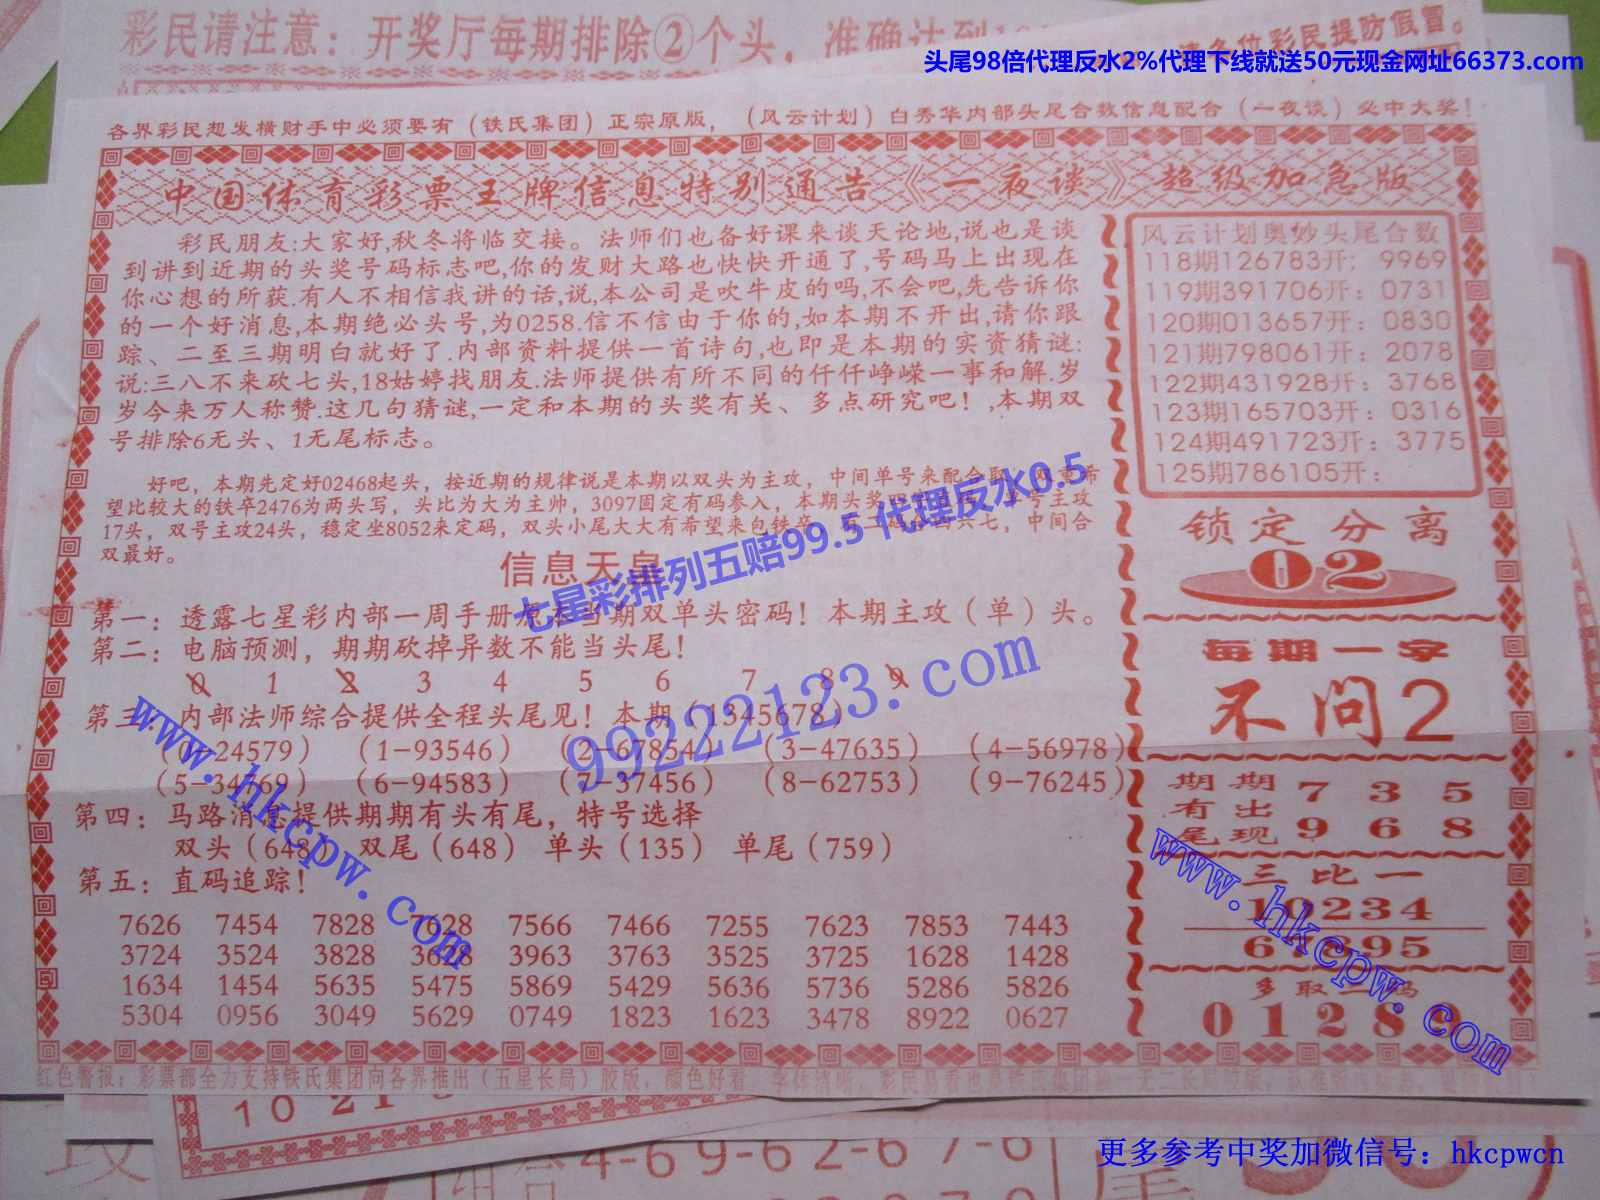 彩民请注意：开奖厅每期排除②个头，准确达到
各位彩民提防假冒。
头尾98倍代理反水2%代理下线就送50元现金网址66373.com
各界彩民想发横财手中必须要有（铁氏集团）正宗原版，（风云计划）白秀华内部头尾合数信息配合（一夜谈）必中大奖！
中国体育彩票王牌信息特别通告《一夜谈》超级加急版
彩民朋友:大家好,秋冬将临交接。法师们也备好课来谈天论地,说也是谈
到讲到近期的头奖号码标志吧,你的发财大路也快快开通了,号码马上出现在
你心想的所获.有人不相信我讲的话,说,本公司是吹牛皮的吗,不会吧,先告诉你
的一个好消息,本期绝必头号,为0258.信不信由于你的,如本期不开出,请你跟
踪、二至三期明白就好了.内部资料提供一首诗句,也即是本期的实资猜谜:
说:三八不来砍七头,18姑婷找朋友.法师提供有所不同的仟仟峥嵘一事和解.岁
岁今来万人称赞.这几句猜谜,一定和本期的头奖有关、多点研究吧！,本期双
号排除6无头、1无尾标志。
好吧，本期先定好02468起头，按近期的规律说是本期以双头为主攻，中间单号来配合取，双重希
望比较大的铁卒2476为两头写，头比为大为主帅，3097固定有码参入，本期头奖
号主攻
17头，双号主攻24头，稳定坐8052来定码，双头小尾大大有希望来包铁卒，有二码在四六七，中间合
双最好。
信息天皇
七星彩排列五赔99.5 代理反水0.5
第一：透露七星彩内部一周手册原本当期双单头密码！本期主攻（单）头。
第二：电脑预测，期期砍掉异数不能当头尾！
0 1 2 3 4 5 6 7 8 9
第三：内部法师综合提供全程头尾见！本期（1345678）
（0-24579） （1-93546） （2-67854） （3-47635） （4-56978）
（5-34769） （6-94583） （7-37456） （8-62753） （9-76245）
第四：马路消息提供期期有头有尾，特号选择
双头（648） 双尾（648） 单头（135） 单尾（759）
第五：直码追踪！
7626 7454 7828 7628 7566 7466 7255 7623 7853 7443
3724 3524 3828 3628 3963 3763 3525 3725 1628 1428
1634 1454 5635 5475 5869 5429 5636 5736 5286 5826
5304 0956 3049 5629 0749 1823 1623 3478 8922 0627
风云计划奥妙头尾合数
118期126783开：9969
119期391706开：0731
120期013657开：0830
121期798061开：2078
122期431928开：3768
123期165703开：0316
124期491723开：3775
125期786105开：
锁定分离
02
每期一字
不问2
期期 7 3 5
有出
尾现 9 6 8
三比一
10234
67895
多取二码
0 1 2 8 9
99222123.com
www.hkcpw.com
www.hkcpw.com
红色警报：彩票部全力支持铁氏集团向各界推出（五星长局）胶版，颜色好看，字体清晰，
10 21
4-69-62-67-6
更多参考中奖加微信号：hkcpwcn